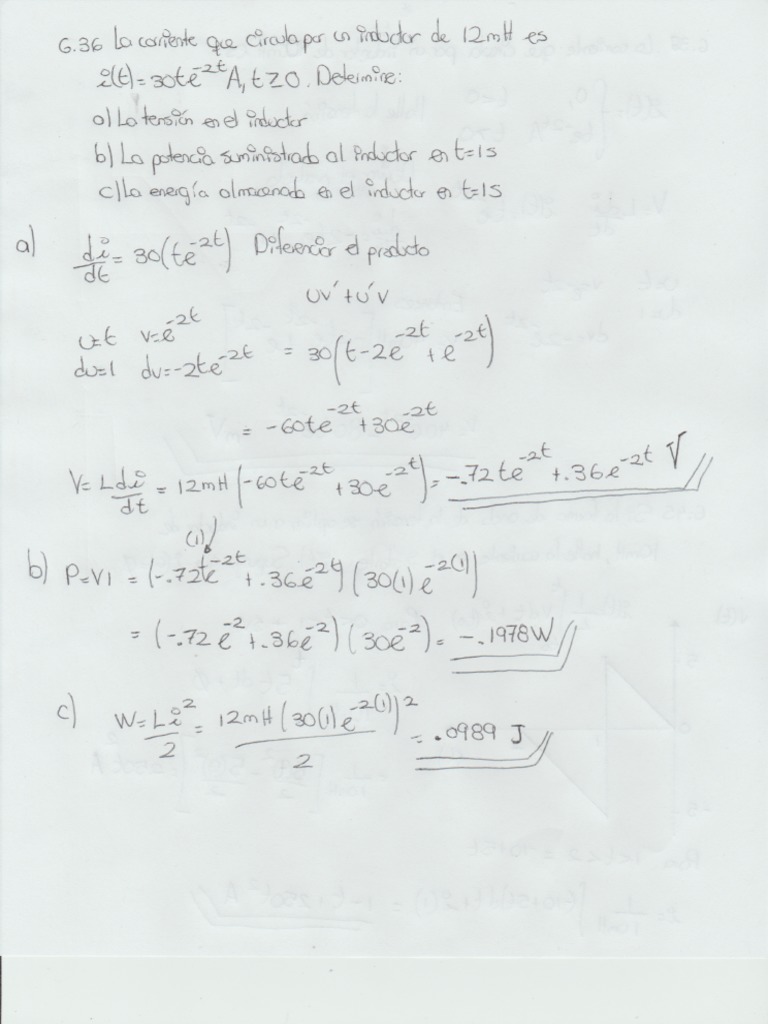 6.36 La corriente que circula por un inductor de 12mH es
i(t)=30te^-2t A, t≥0. Determine:
a) La tensión en el inductor
b) La potencia suministrada al inductor en t=1s
c) La energía almacenada en el inductor en t=1s
a) di/dt = 30(te^-2t) Diferenciar el producto
uv' + u'v
u=t v=e^-2t
du=1 dv=-2te^-2t = 30(t-2e^-2t + e^-2t)
= -60te^-2t + 30e^-2t
V= L di/dt = 12mH (-60te^-2t + 30e^-2t) = -.72te^-2t + .36e^-2t V
(1)
b) P=VI = (-.72te^-2t + .36e^-2t) (30(1)e^-2(1))
= (-.72e^-2 + .36e^-2) (30e^-2) = -.1978W
c) W= Li^2/2 = 12mH (30(1)e^-2(1))^2/2 = .0989 J